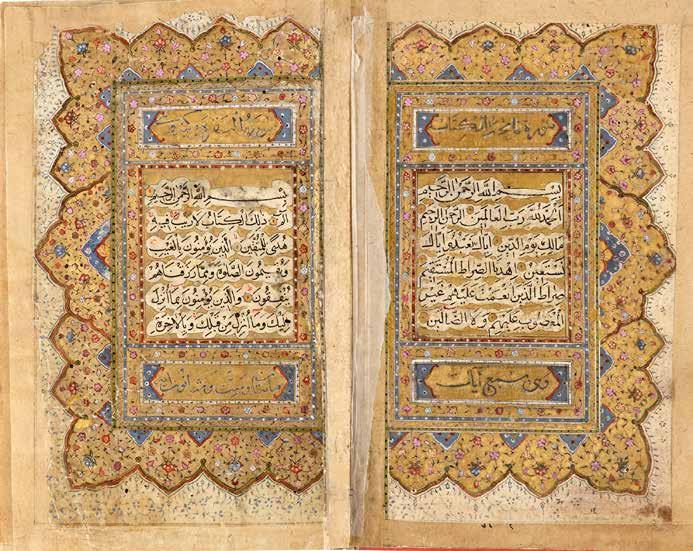 سورة فاتحة الكتاب
بسم الله الرحمن الرحيم
الحمد لله رب العالمين الرحمن الرحيم
مالك يوم الدين اياك نعبد واياك
نستعين اهدنا الصراط المستقيم
صراط الذين انعمت عليهم غير
المغضوب عليهم ولا الضالين
وهي سبع آيات
سورة البقرة
بسم الله الرحمن الرحيم
الم ذلك الكتاب لا ريب فيه
هدى للمتقين الذين يؤمنون بالغيب
ويقيمون الصلوة ومما رزقناهم
ينفقون والذين يؤمنون بما انزل
اليك وما انزل من قبلك وبالاخرة